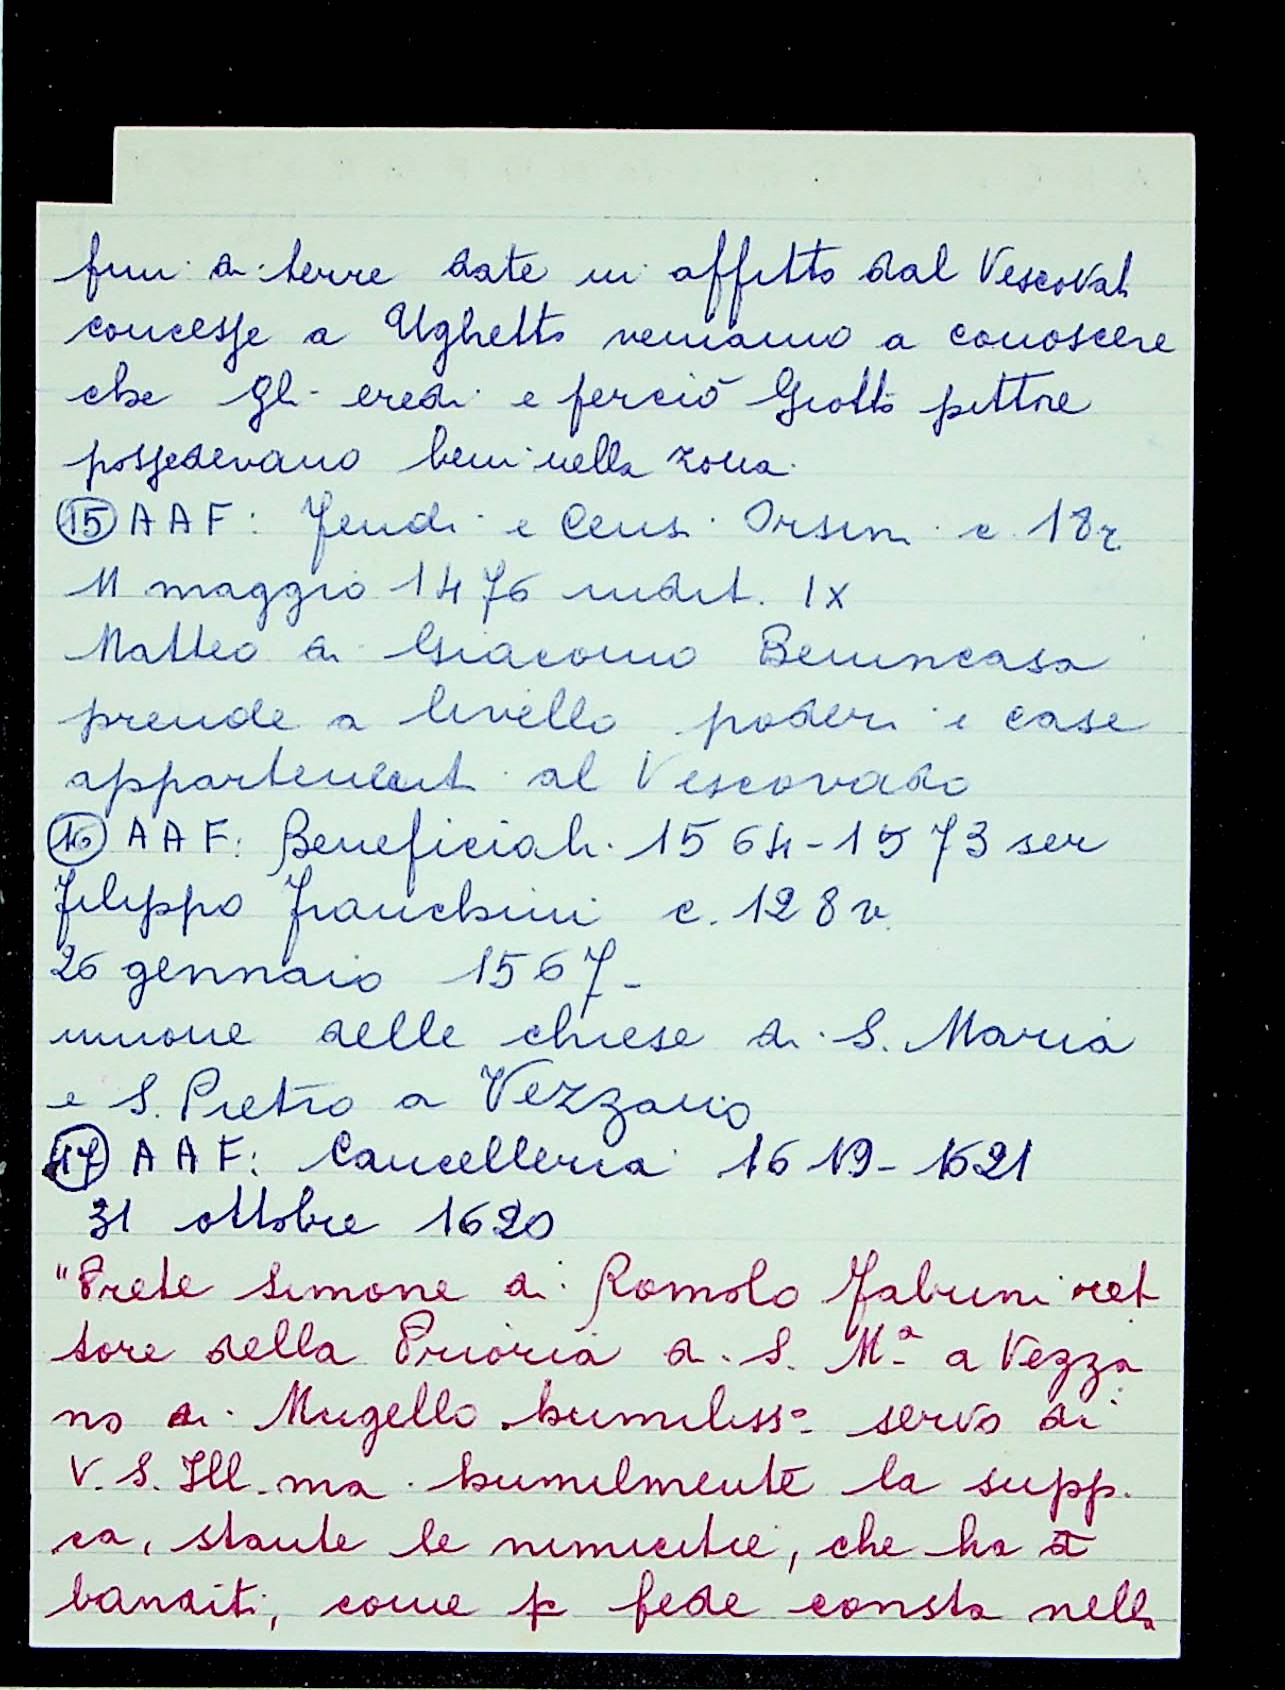 fini di terre date in affitto dal Vescovat
concesse a Ughetto veniamo a conoscere
che gli eredi e perciò Giotto pittore
possedevano beni nella zona.
(15) AAF: Feudi e Censi Orsini c. 18r
11 maggio 1476 indit. IX
Matteo di Giacomo Benincasa
prende a livello poderi e case
appartenenti al Vescovado
(16) AAF: Beneficiali. 1564-1573 ser
Filippo Franchini c. 128v.
26 gennaio 1567-
unione delle chiese di S. Maria
e S. Pietro a Vezzano
(17) AAF: Cancelleria 1619-1621
31 ottobre 1620
"Prete Simone di Romolo Fabrini ret
tore della Prioria di S. Mª a Vezza
no di Mugello humilissº servo di
V. S. Ill.ma humilmente la supp.
ca, stante le nimicitie, che ha a
banditi, come p fede consta nella